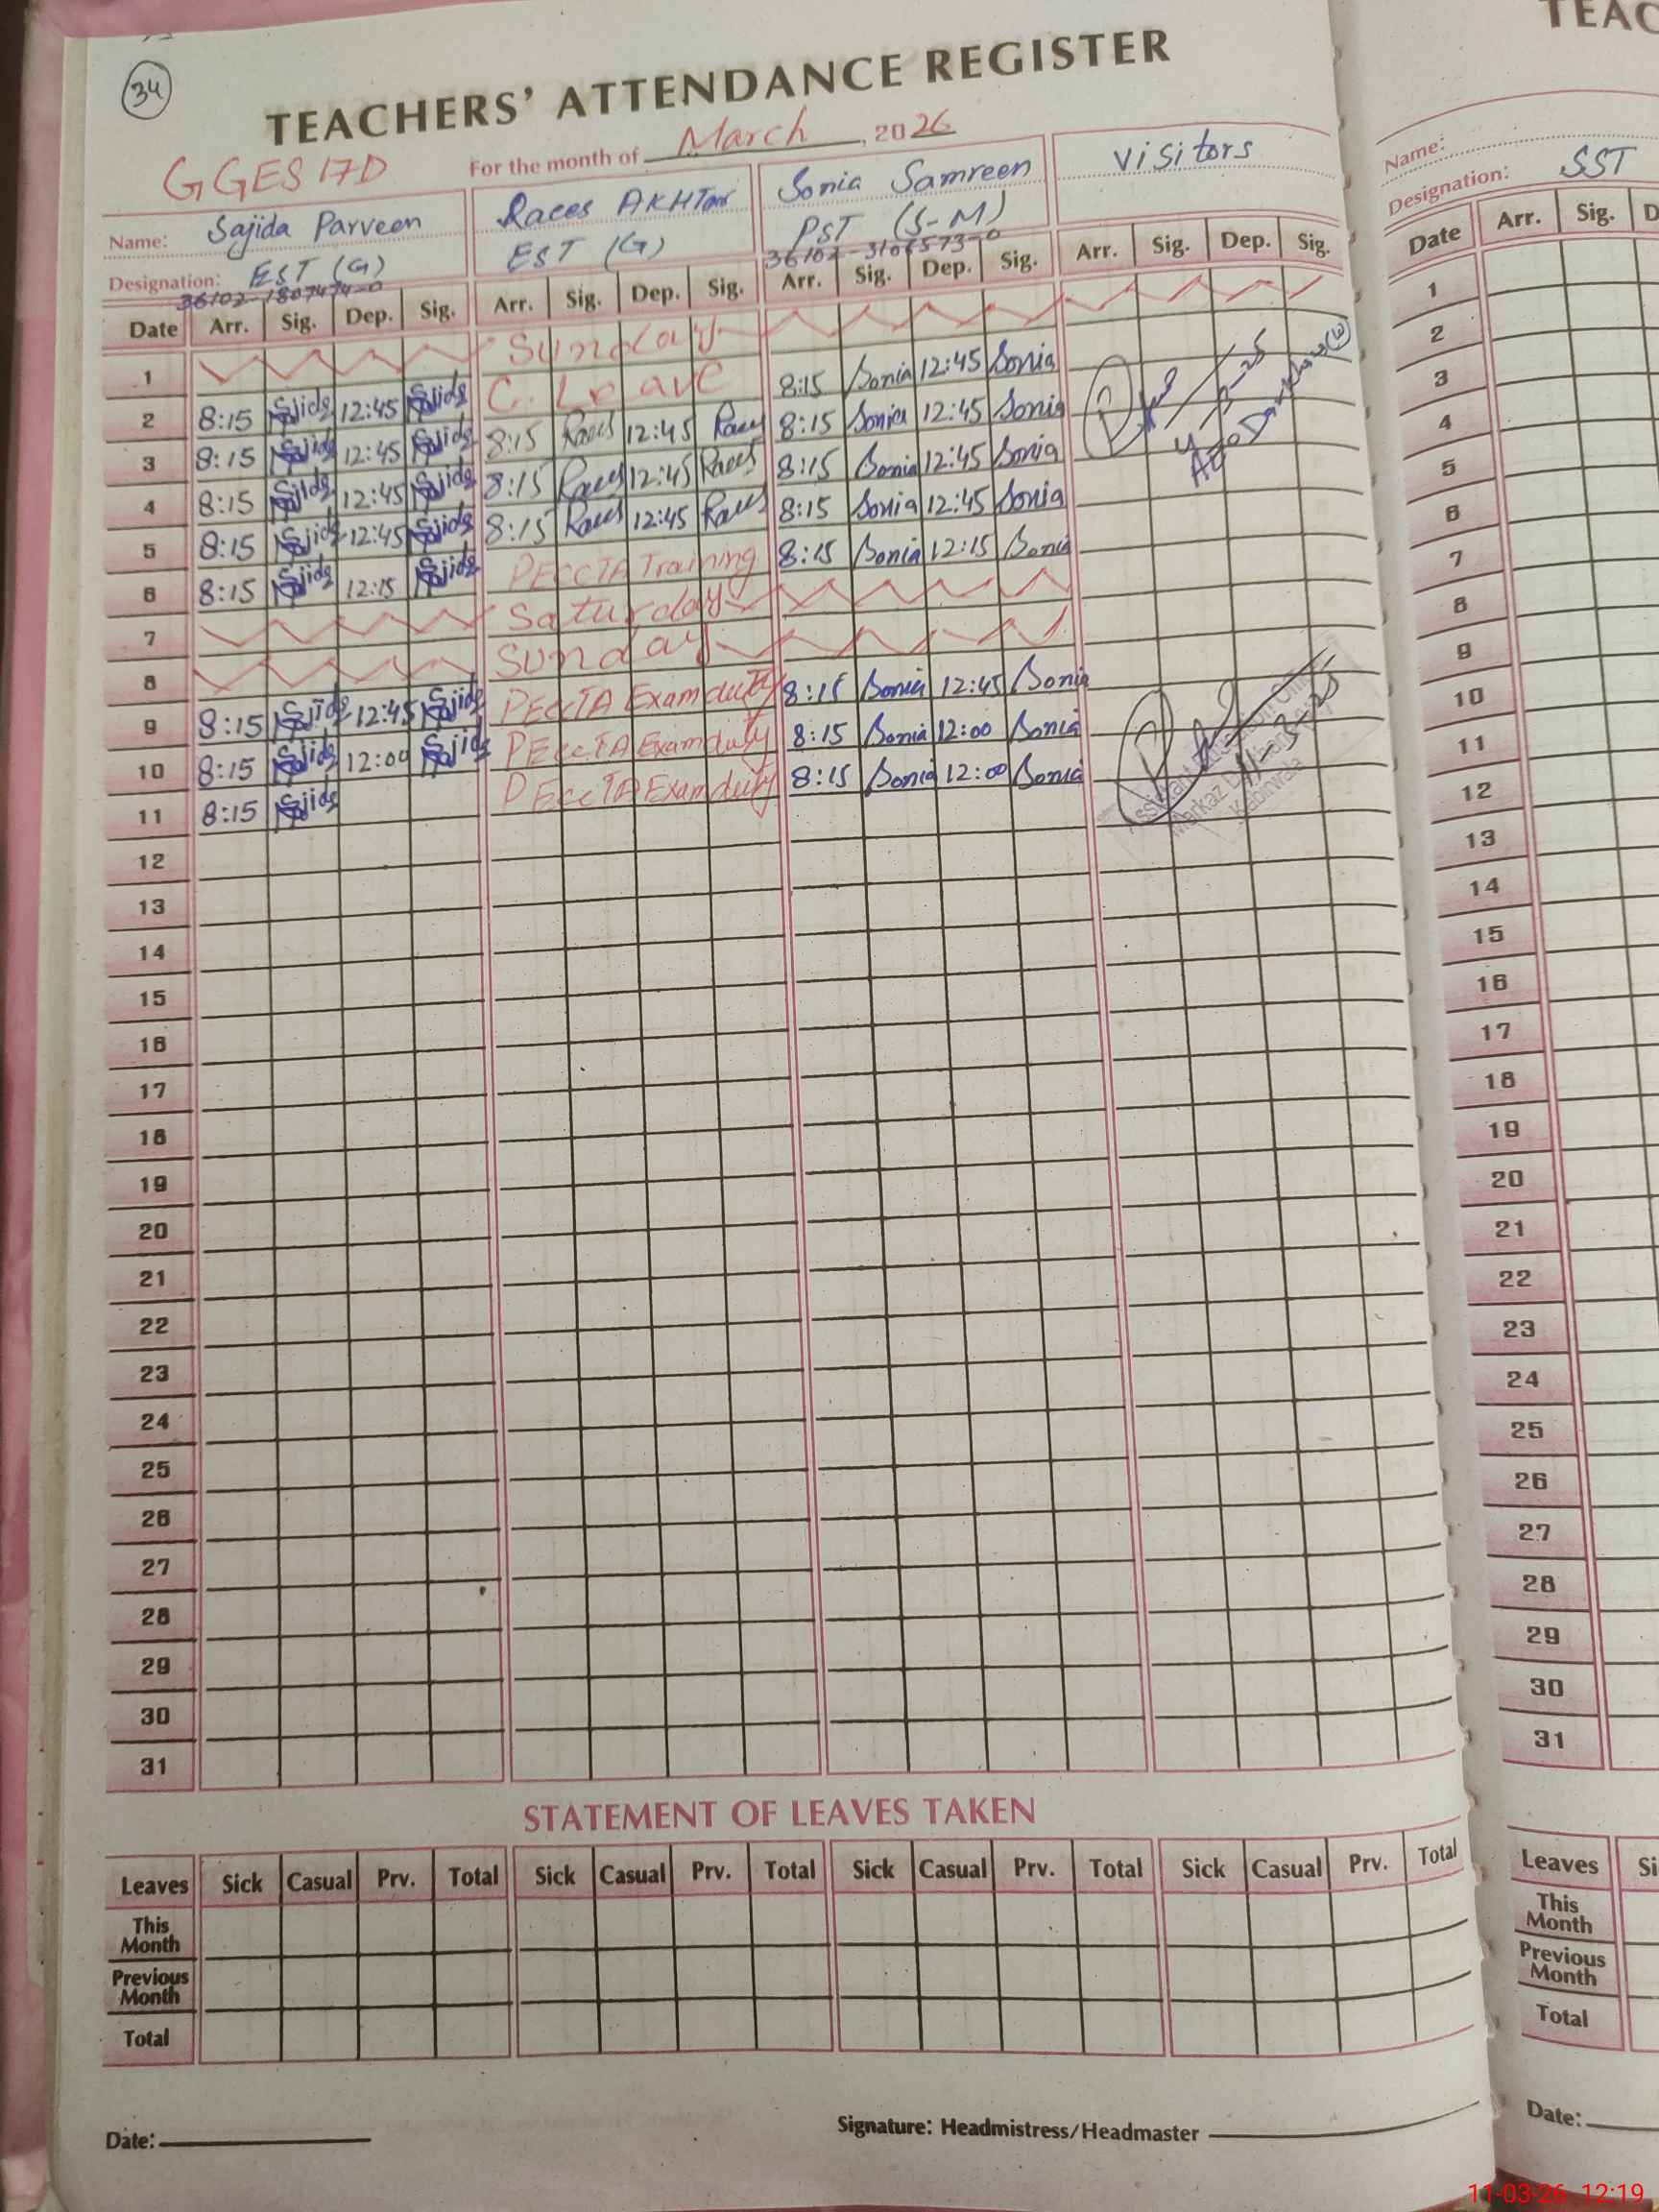 34
TEACHERS' ATTENDANCE REGISTER
For the month of March, 2026
GGES 17D
Name: Sajida Parveen Raees AKHTar Sonia Samreen Visitors
Designation: EST (G) EST (G) PST (S-M)
36102-1807474-0 36102-3106573-0
Date Arr. Sig. Dep. Sig. Arr. Sig. Dep. Sig. Arr. Sig. Dep. Sig. Arr. Sig. Dep. Sig.
1 Sunday
2 8:15 Sajida 12:45 Sajida C. Leave 8:15 Sonia 12:45 Sonia
3 8:15 Sajida 12:45 Sajida 8:15 Raees 12:45 Raees 8:15 Sonia 12:45 Sonia
4 8:15 Sajida 12:45 Sajida 8:15 Raees 12:45 Raees 8:15 Sonia 12:45 Sonia
5 8:15 Sajida 12:45 Sajida 8:15 Raees 12:45 Raees 8:15 Sonia 12:45 Sonia
6 8:15 Sajida 12:15 Sajida PECCTA Training 8:15 Sonia 12:15 Sonia
7 Saturday
8 Sunday
9 8:15 Sajida 12:45 Sajida PECCTA Exam duty 8:15 Sonia 12:45 Sonia
10 8:15 Sajida 12:00 Sajida PECCTA Exam duty 8:15 Sonia 12:00 Sonia
11 8:15 Sajida PECCTA Exam duty 8:15 Sonia 12:00 Sonia
4-3-25
11-3-25
Assistant Education Officer
Markaz
Kabirwala
12
13
14
15
16
17
18
19
20
21
22
23
24
25
26
27
28
29
30
31
STATEMENT OF LEAVES TAKEN
Leaves Sick Casual Prv. Total Sick Casual Prv. Total Sick Casual Prv. Total Sick Casual Prv. Total
This Month
Previous Month
Total
Date:
Signature: Headmistress/Headmaster
TEAC
Name:
Designation: SST
Date Arr. Sig. D
1
2
3
4
5
6
7
8
9
10
11
12
13
14
15
16
17
18
19
20
21
22
23
24
25
26
27
28
29
30
31
Leaves Si
This Month
Previous Month
Total
Date:
11-03-26 12:19